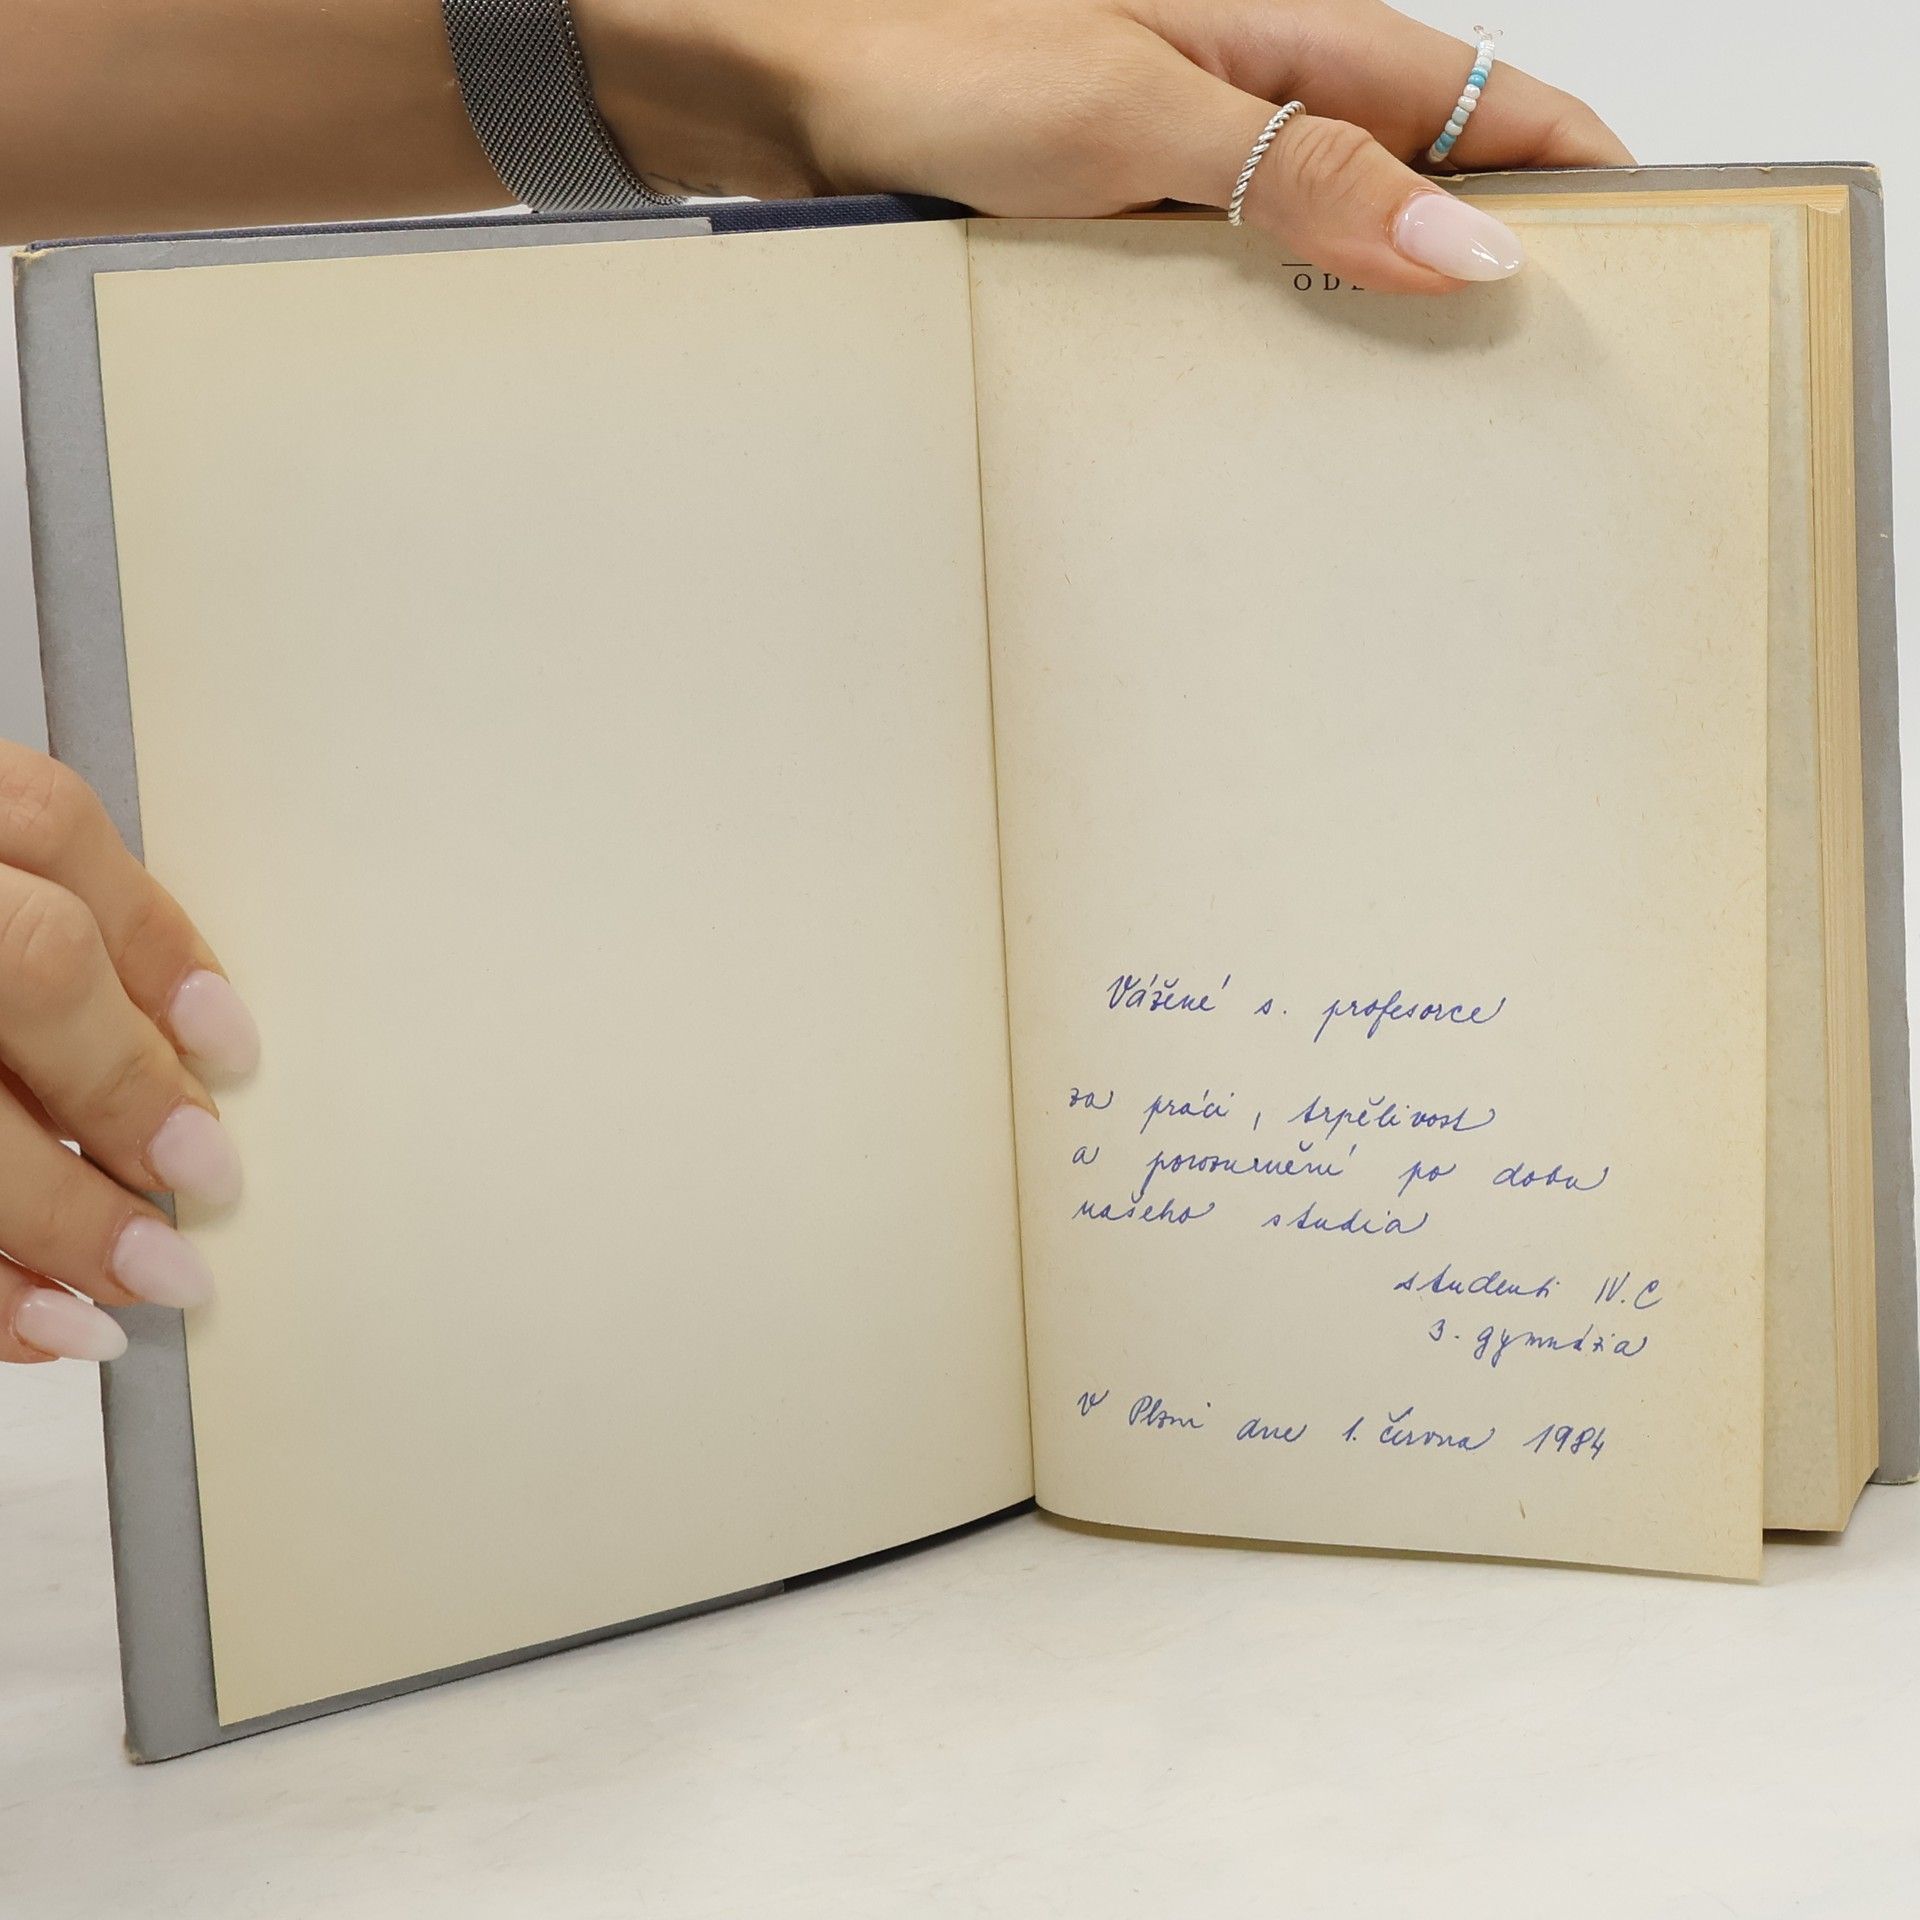 OD
Vážené s. profesorce
za práci, trpělivost
a porozumění po dobu
našeho studia
studenti IV. C
3. gymnázia
V Plzni dne 1. června 1984